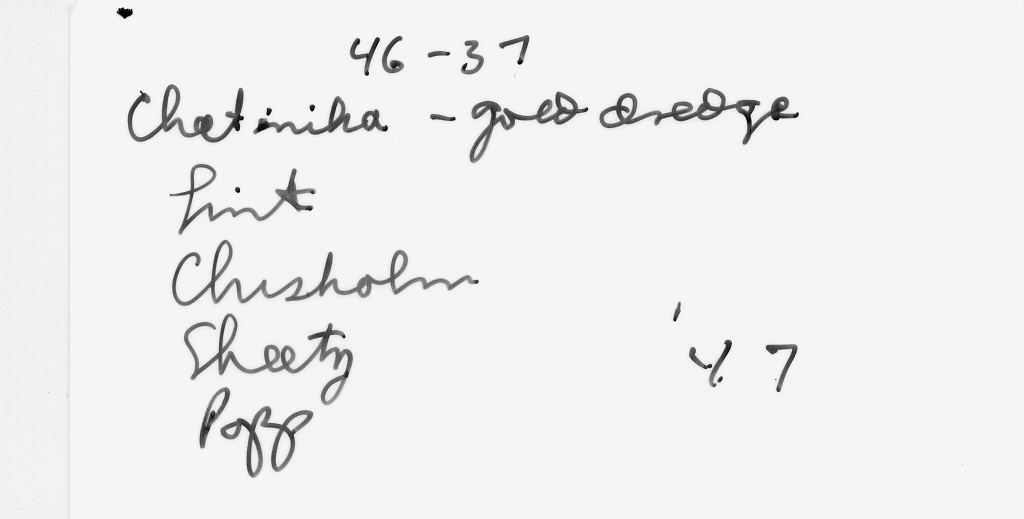 46-37
Chatinika - gold dredge
Lint
Chisholm
Sheetz
Popp
'47